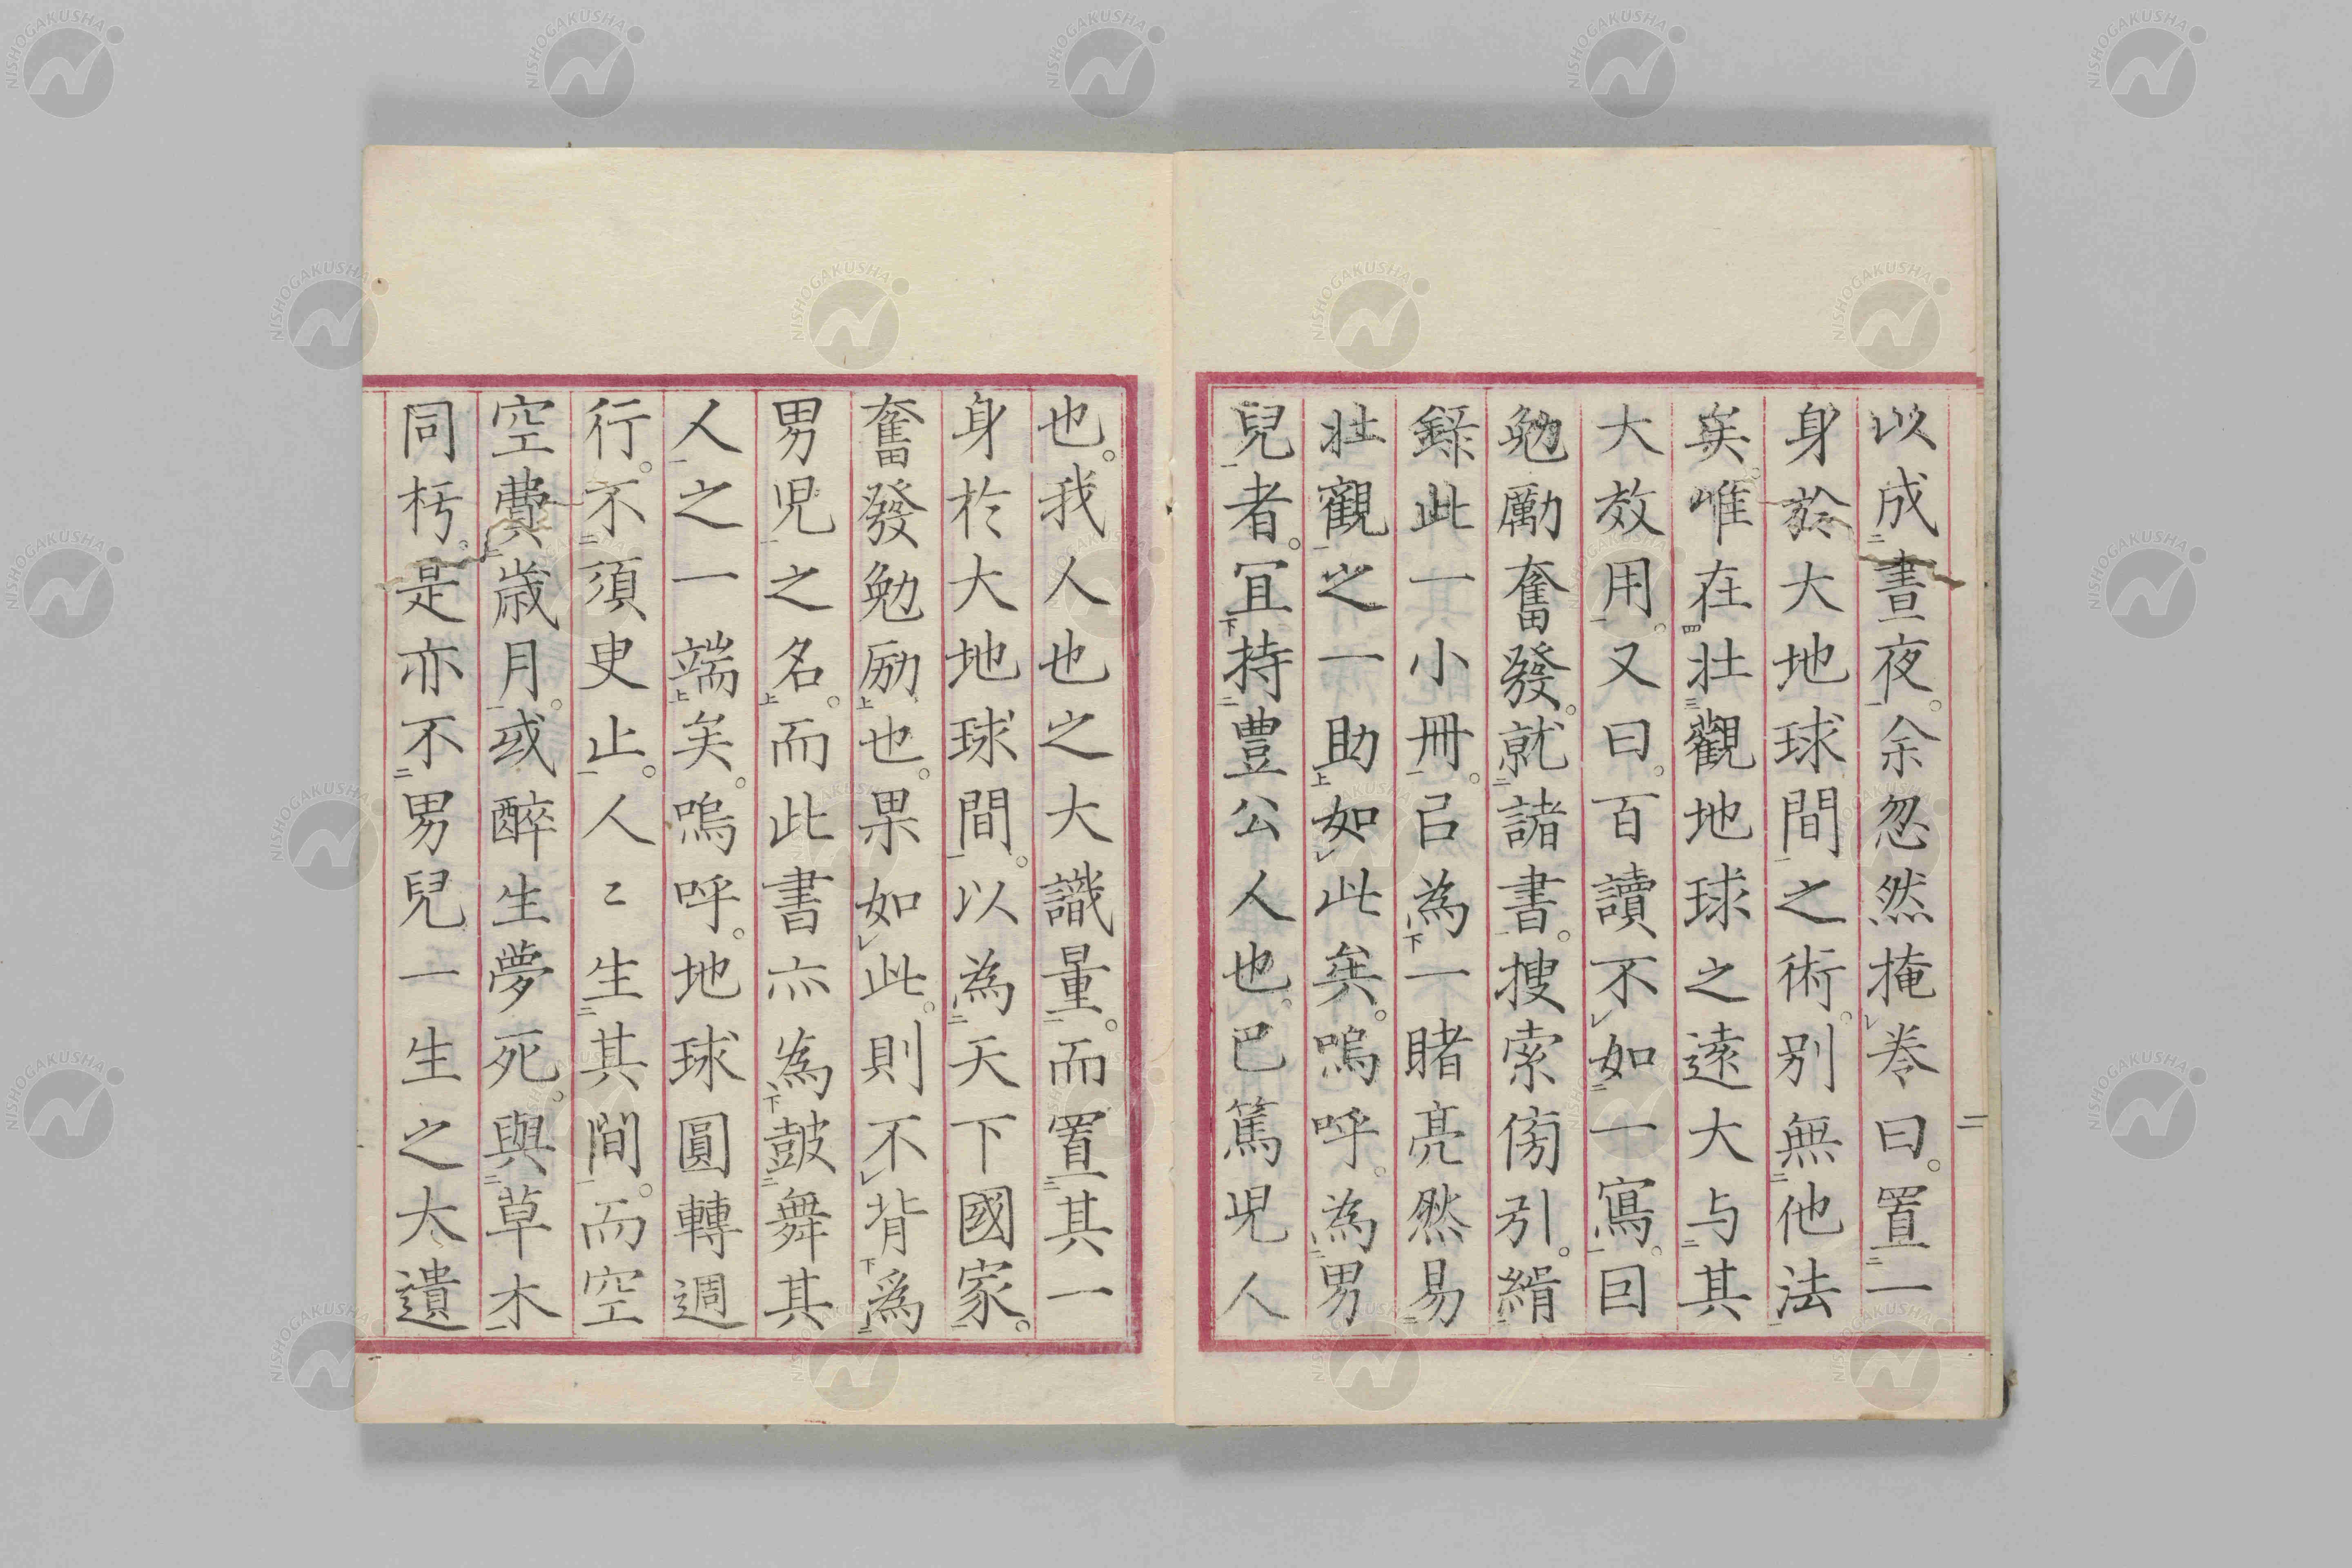 以成晝夜。余忽然掩巻曰。置一
身於大地球間之術。別無他法
矣。唯在壮觀地球之遠大与其
大效用。又曰。百讀不如一寫。囙
勉勵奮發。就諸書。搜索傍引。緝
錄此一小冊。㠯為一睹亮然易
壮觀之一助如此矣。嗚呼。為男
兒者。冝持豊公人也。巴篤児人
也。我人也之大識量。而置其一
身於大地球間。以為天下國家。
奮發勉励也。果如此。則不背為
男児之名。而此書亦為鼓舞其
人之一端矣。嗚呼。地球圓轉週
行。不須史止。人〻生其間。而空
空費歳月。或醉生夢死。與草木
同朽。是亦不男兒一生之大遺
二